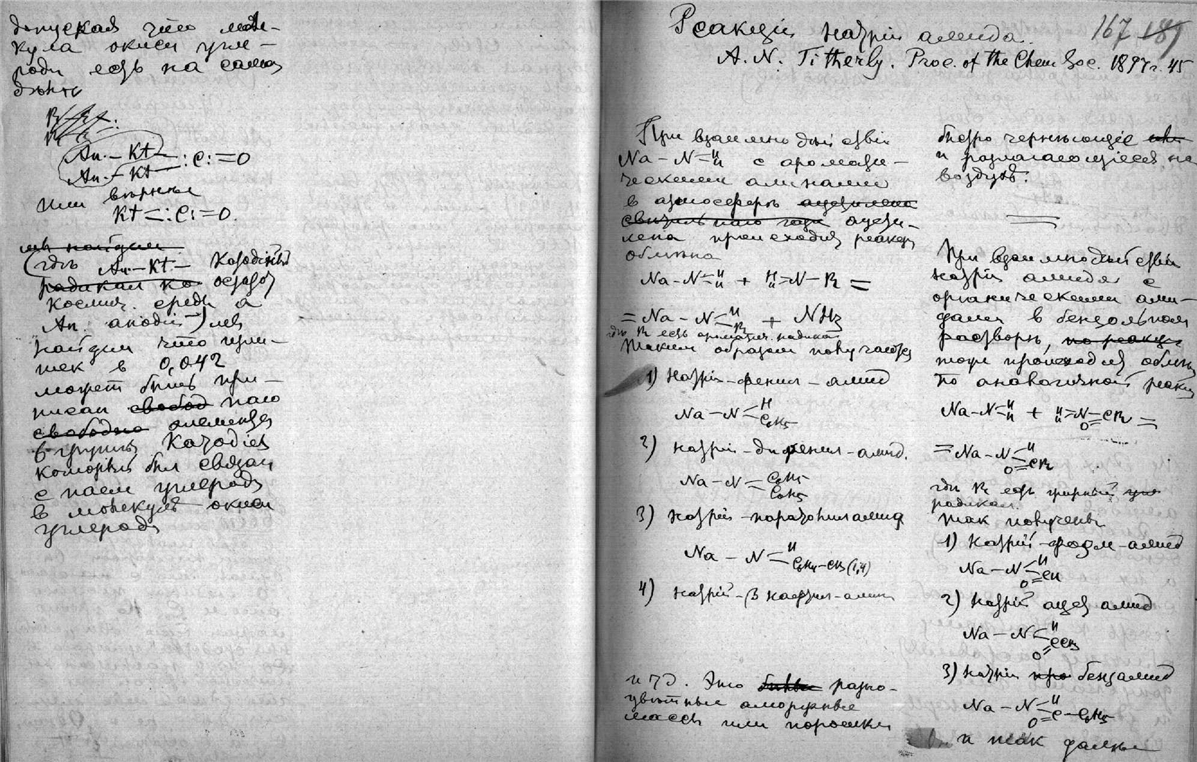 допуская что моле-
кула окиси угле-
рода есть на самом
дѣлѣ
An.–Kt–
An.–Kt– :C:=O
или вѣрнѣе
Kt<:C:=O.
мы найдем
(гдѣ An–Kt– катодный
радикал
космич. среды а
An. анодій) мы
найдем что изли-
шек в 0,042
может быть при-
писан свобод паю
свободно элемента
в группѣ Катодія
который был связан
с паем углерода
в молекулѣ окиси
углерода
167 189
Реакціи натрій амида.
A. N. Titherly. Proc. of the Chem Soc. 1897 г. 45
При взаимнодѣйствіи
Na–N=H H с аромати-
ческими аминами
в атмосферѣ
ацети-
лена происходит реакція
обмѣна
Na–N=H H + H H=N–R =
= Na–N<H R + NH3
гдѣ R есть ароматич. радикал
Таким образом получаются
1) натрій-фенил-амид
Na–N<H C6H5
2) натрій-дифенил-амид.
Na–N<C6H5 C6H5
3) натрій-паратолиламид
Na–N<H C6H4–CH3 (1,4)
4) натрій-β нафтил-амид
и т.д. Это разно-
цвѣтные аморфные
массы или порошки
быстро чернѣющіе
и разлагающіеся на
воздухѣ.
При взаимнодѣйствіи
натрій амида с
органическими ами-
дами в бензольном
растворѣ,
тоже происходит обмѣн
по аналогичной реакціи
Na–N=H H + H H=N O=CR =
= Na–N<H O=CR
гдѣ R есть жирный
радикал.
Так получены
1) Натрій-форм-амид
Na–N<H O=CH
2) Натрій ацет амид
Na–N<H O=CCH3
3) Натрій бензамид
Na–N<H O=C–C6H5
и так далѣе